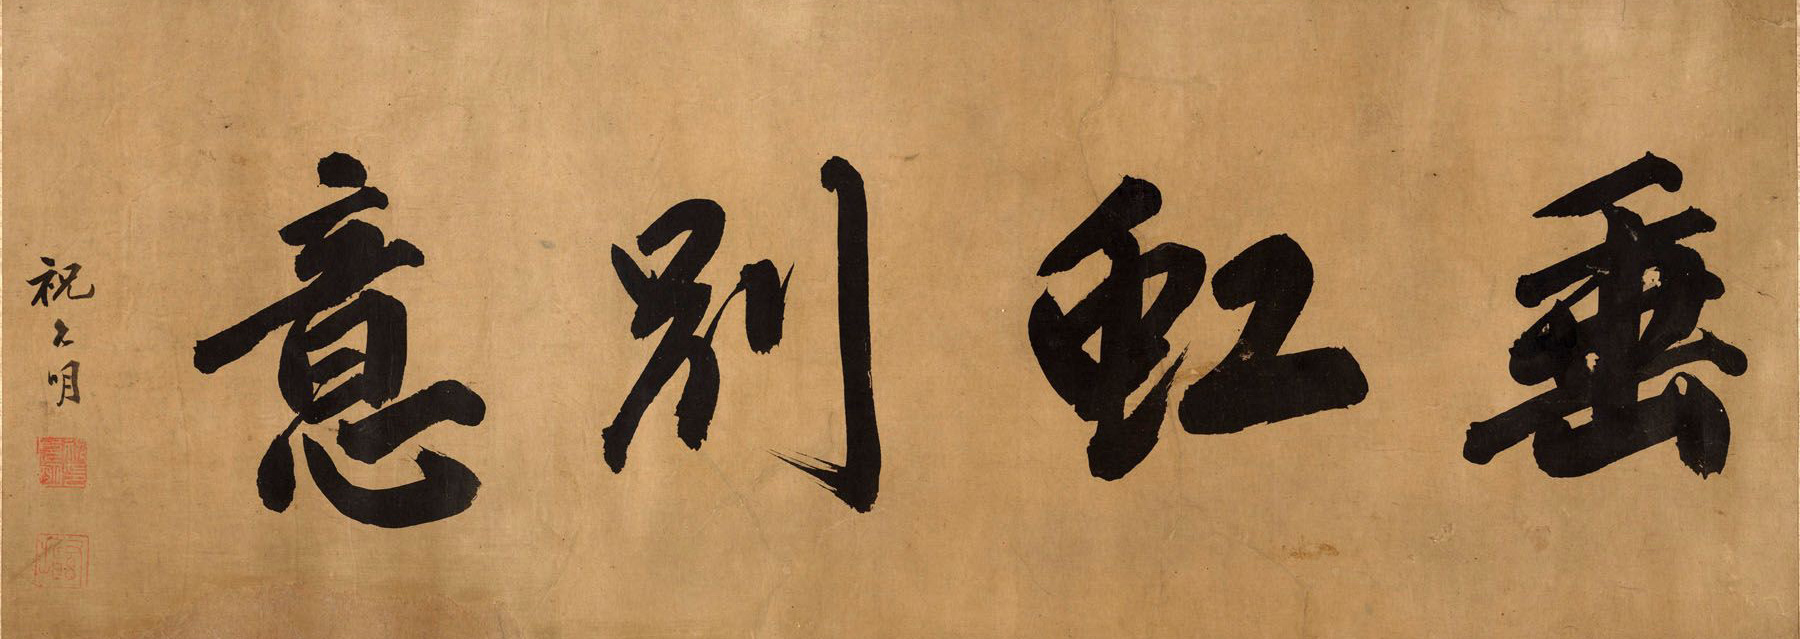 垂虹別意
祝允明